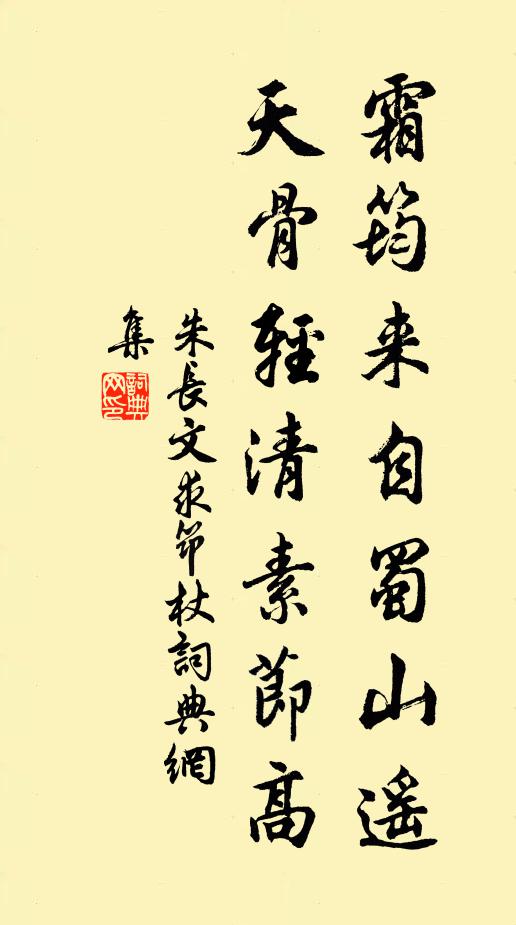 霜筠来自蜀山遥
天骨輕清素節高
朱長文求筇杖詞典網
集
詞典网印